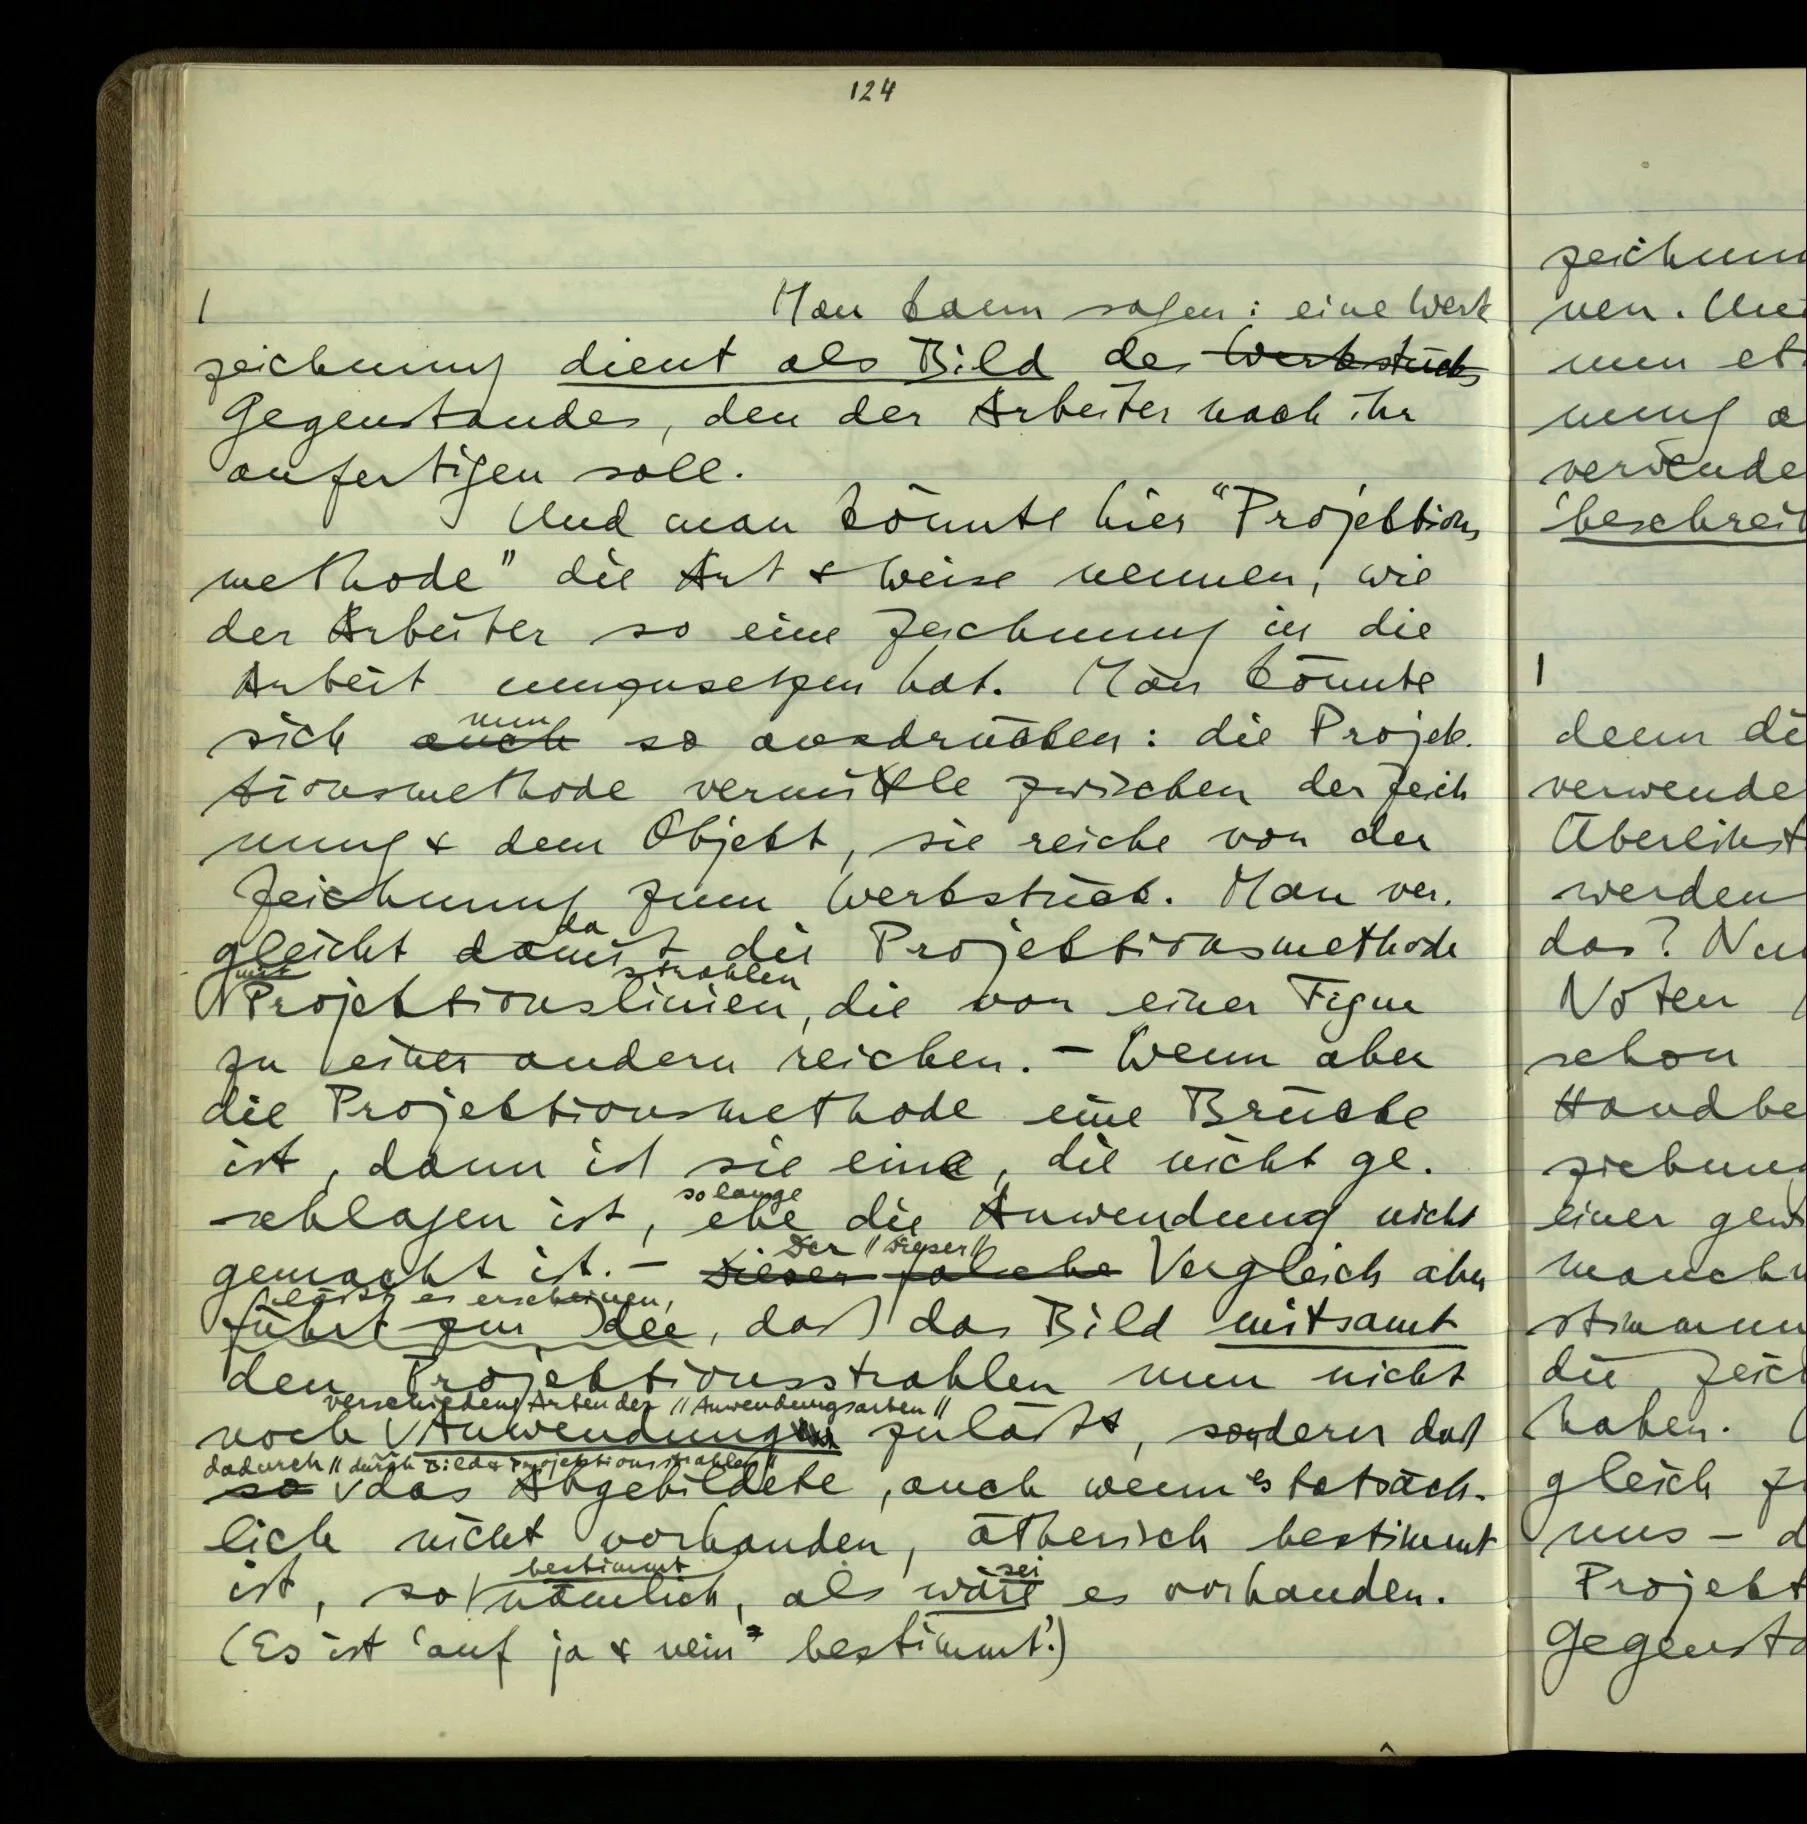 124
| Man kann sagen: eine Werk
zeichnung dient als Bild des Werkstücks
Gegenstandes, den der Arbeiter nach ihr
anfertigen soll.
Und man könnte hier "Projektions
methode" die Art & Weise nennen, wie
der Arbeiter so eine Zeichnung in die
Arbeit umzusetzen hat. Man könnte
nun
sich auch so ausdrücken: die Projek-
tionsmethode vermittle zwischen der Zeich
nung & dem Objekt, sie reiche von der
Zeichnung zum Werkstück. Man ver-
da
gleicht damit die Projektionsmethode
mit strahlen
Projektionslinien, die von einer Figur
zu einer andern reichen. – Wenn aber
die Projektionsmethode eine Brücke
ist, dann ist sie eine, die nicht ge-
solange
schlagen ist, ehe die Anwendung nicht
Der "Dieser"
gemacht ist. – Dieser falsche Vergleich aber
läßt es erscheinen,
führt zur Idee, daß das Bild mitsamt
den Projektionsstrahlen nun nicht
verschiedene Arten der "Anwendungsarten"
noch Anwendungen zuläßt, sondern daß
dadurch "durch Bild & Projektionsstrahlen"
so das Abgebildete, auch wenn es tatsäch-
lich nicht vorhanden, ätherisch bestimmt
bestimmt sei
ist, so nämlich, als wäre es vorhanden.
(Es ist 'auf ja & nein' bestimmt.)
zeichnun
nen. Und
nun et
nung a
verwende
'beschreib
|
denn di
verwende
Übereinst
werden
das? Nu
Noten
schon
Handbe
ziehung
einer gew
manchm
stimmun
die Zeich
haben.
gleich z
uns – d
Projekt
Gegensta